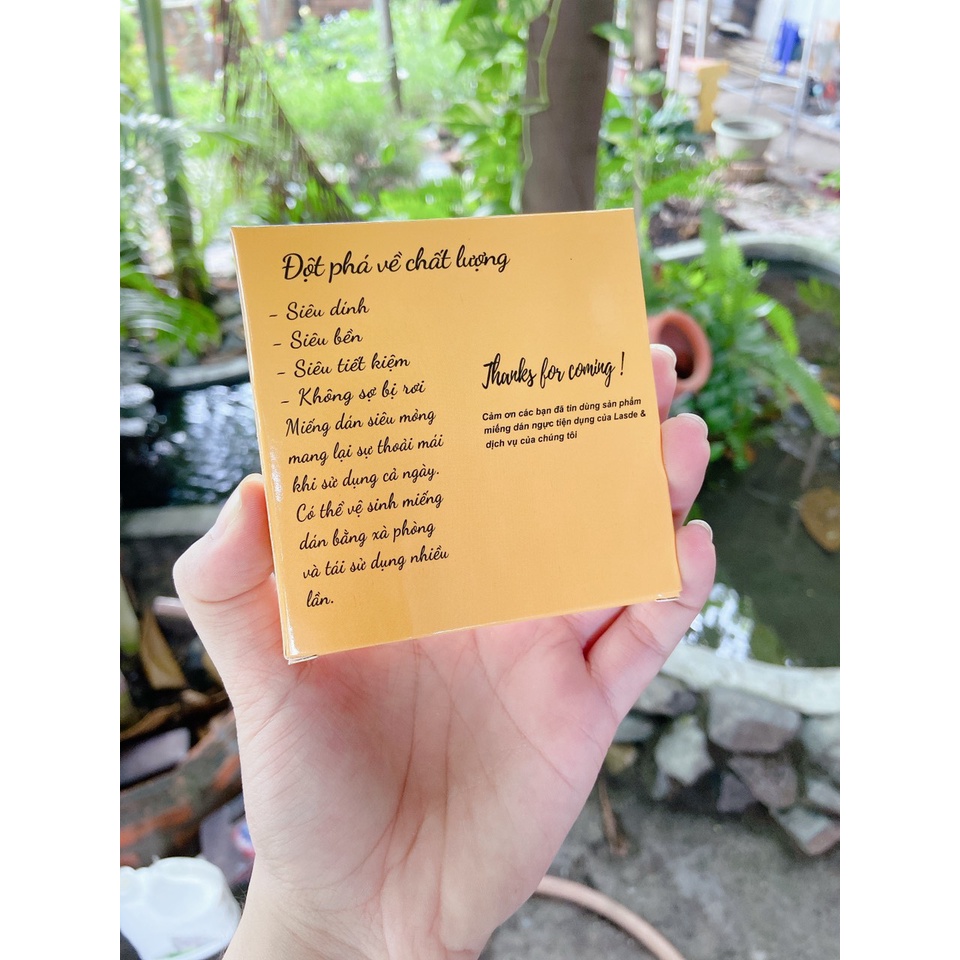 Đột phá về chất lượng
- Siêu dính
- Siêu bền
- Siêu tiết kiệm
- Không sợ bị rơi
Miếng dán siêu mỏng
mang lại sự thoải mái
khi sử dụng cả ngày.
Có thể vệ sinh miếng
dán bằng xà phòng
và tái sử dụng nhiều
lần.
Thanks for coming !
Cảm ơn các bạn đã tin dùng sản phẩm
miếng dán ngực tiện dụng của Lasde &
dịch vụ của chúng tôi